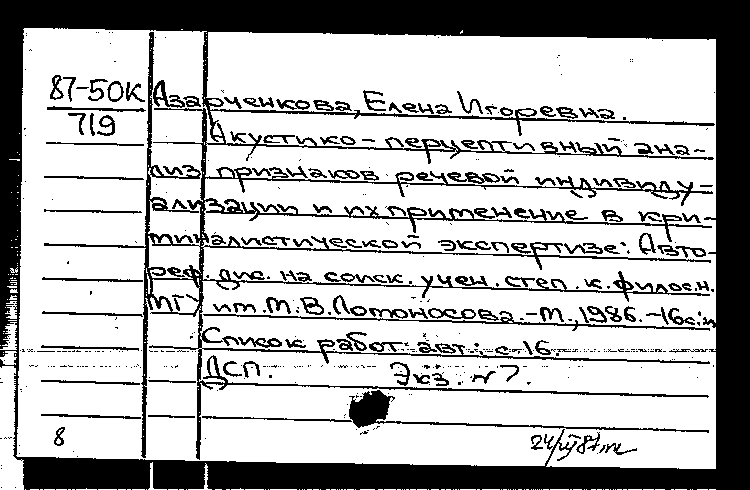 87-50К Азарченкова, Елена Игоревна.
719
Акустико-перцептивный ана-
лиз признаков речевой индивиду-
ализации и их применение в кри-
миналистической экспертизе: Авто-
реф. дис. на соиск. учен. степ. к. филос.н.
МГУ им. М.В. Ломоносова. -М., 1986. -16с.;
Список работ авт.: с 16.
ДСП. Экз. №7.
8